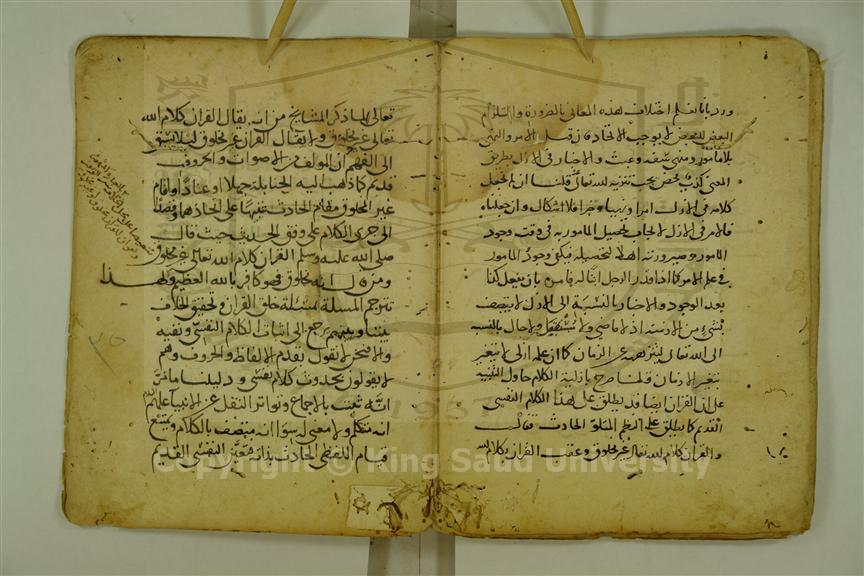 ورد بانا نعلم اختلاف هذه المعاني بالضرورة واستلزام
البعض للبعض لا يوجب الاتحاد فان قيل الامر والنهي
بلا مامور ومنهي سفه وعبث والاخبار في الازل بطريق
المضي كذب محض يجب تنزيه الله تعالى قلنا ان لم نجعل
كلامه في الازل امرا ونهيا وخبرا فلا اشكال وان جعلناه
فالامر في الازل لايجاب تحصيل المامور به في وقت وجود
المامور وصيرورته اهلا لتحصيله فيكفي وجود المامور
في علم الامر كما اذا قدر الرجل ابنا له فامره بان يفعل كذا
بعد الوجود والاخبار بالنسبة الى الازل لا يتصف
بشيء من الازمنة اذ لا ماضي ولا مستقبل ولا حال بالنسبة
الى الله تعالى لتنزهه عن الزمان كما ان علمه ازلي لا يتغير
بتغير الازمان ولما صرح بازلية الكلام حاول التنبيه
على ان القران ايضا قد يطلق على هذا الكلام النفسي
القديم كما يطلق على النظم المتلو الحادث فقال
والقران كلام الله تعالى غير مخلوق وعقب القران بكلام الله
تعالى لما ذكر المشايخ من انه يقال القران كلام الله
تعالى غير مخلوق ولا يقال القران غير مخلوق ليلا يسبق
الى الفهم ان المولف من الاصوات والحروف
قديم كما ذهب اليه الحنابلة جهلا او عنادا واقام
غير المخلوق مقام الحادث تنبيها على اتحادهما وقصدا
الى جري الكلام على وفق الحديث حيث قال
صلى الله عليه وسلم القران كلام الله تعالى غير مخلوق
ومن قال انه مخلوق فهو كافر بالله العظيم ولهذا
تترجم المسلة بمسئلة خلق القران وتحقيق الخلاف
بيننا وبينهم يرجع الى اثبات الكلام النفسي ونفيه
والا فنحن لا نقول بقدم الالفاظ والحروف وهم
لا يقولون بحدوث كلام نفسي ودليلنا ما مر
انه ثبت بالاجماع وتواتر النقل عن الانبيا عليهم
انه متكلم ولا معنى له سوا انه متصف بالكلام ويمتنع
قيام اللفظي الحادث بذاته فتعين النفسي القديم
Copyright © King Saud University
1957